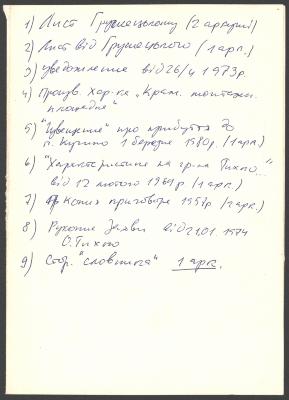 1) Лист Грушецькому (2 аркуші)
2) Лист від Грушецького (1 арк.)
3) уведомление від 26/4 1973р.
4) Произв. хар-ка „Крам. монтажн.
площадка"
5) про прибуття до
п. Купино 1 березня 1980р. (1 арк)
6) "Характеристика на гр-на Тихо..."
від 12 лютого 19 р (1 арк.)
7) Копия приговора 195 р. (2 арк.)
8) Рукопис Заяви від 21.01. 1974
О. Тихго
9) Стор. "словника" 1 арк.